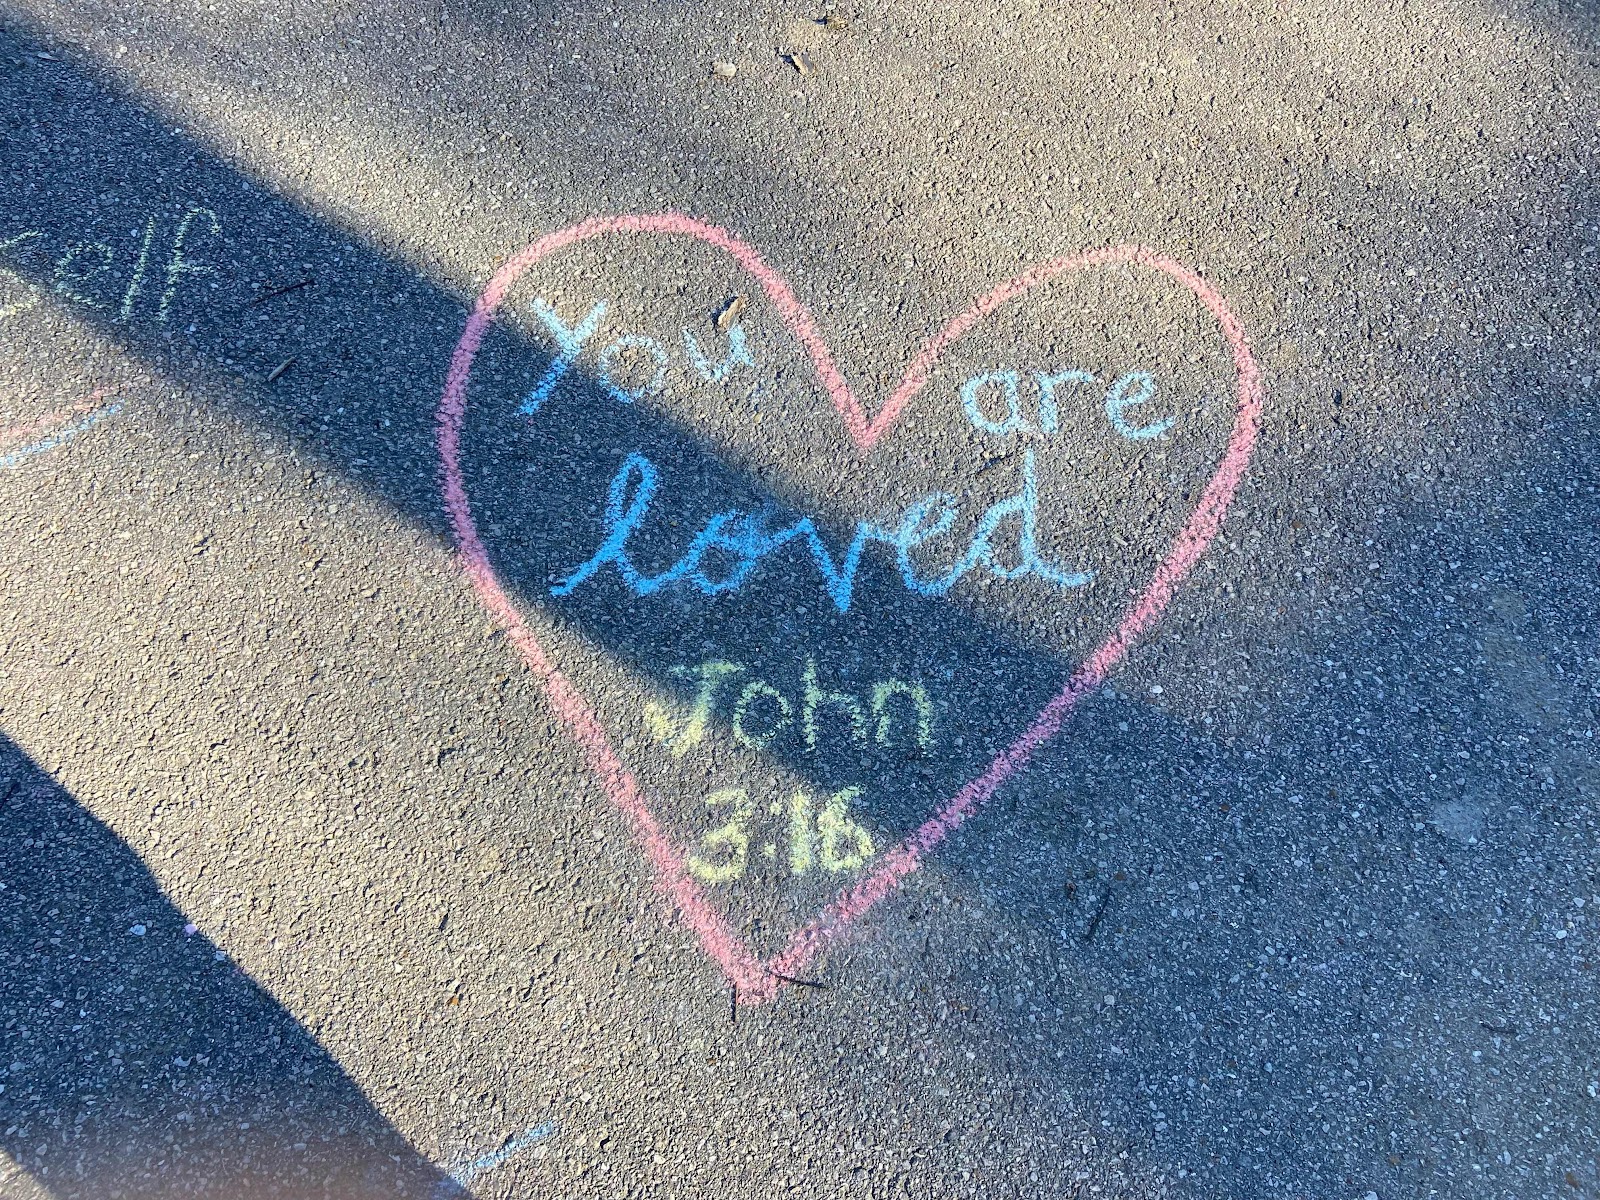 self
You are
loved
John
3:16